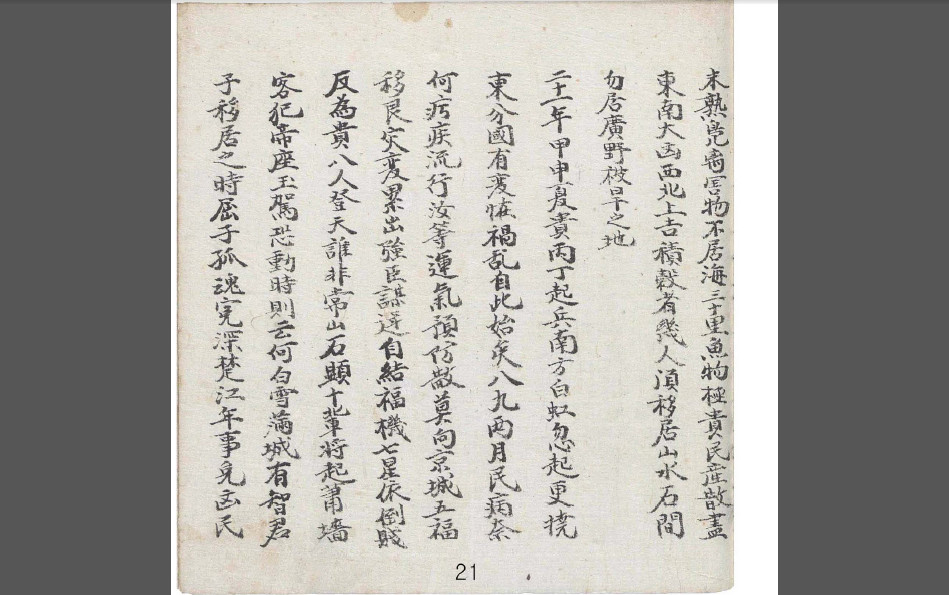 未熟鬼嘶害物不居海三十里魚物極貴民産散盡
東南大凶西北上吉積穀者幾人須移居山水石間
勿居廣野被旱之地
二十一年甲申夏貴丙丁起兵南方白虹忽起更撓
東分國有変怪禍乱自此始矣八九両月民病奈
何疠疾流行汝等運氣預防散莫向京城五福
移艮灾変累出強臣謀逆自結福機七星依倒賤
反為貴八人登天誰非常山石顕十軰将起蕭墻
客犯帝座玉駕恐動時則云何白雪滿城有智君
子移居之時屈子孤魂寃深楚江年事免凶民
21